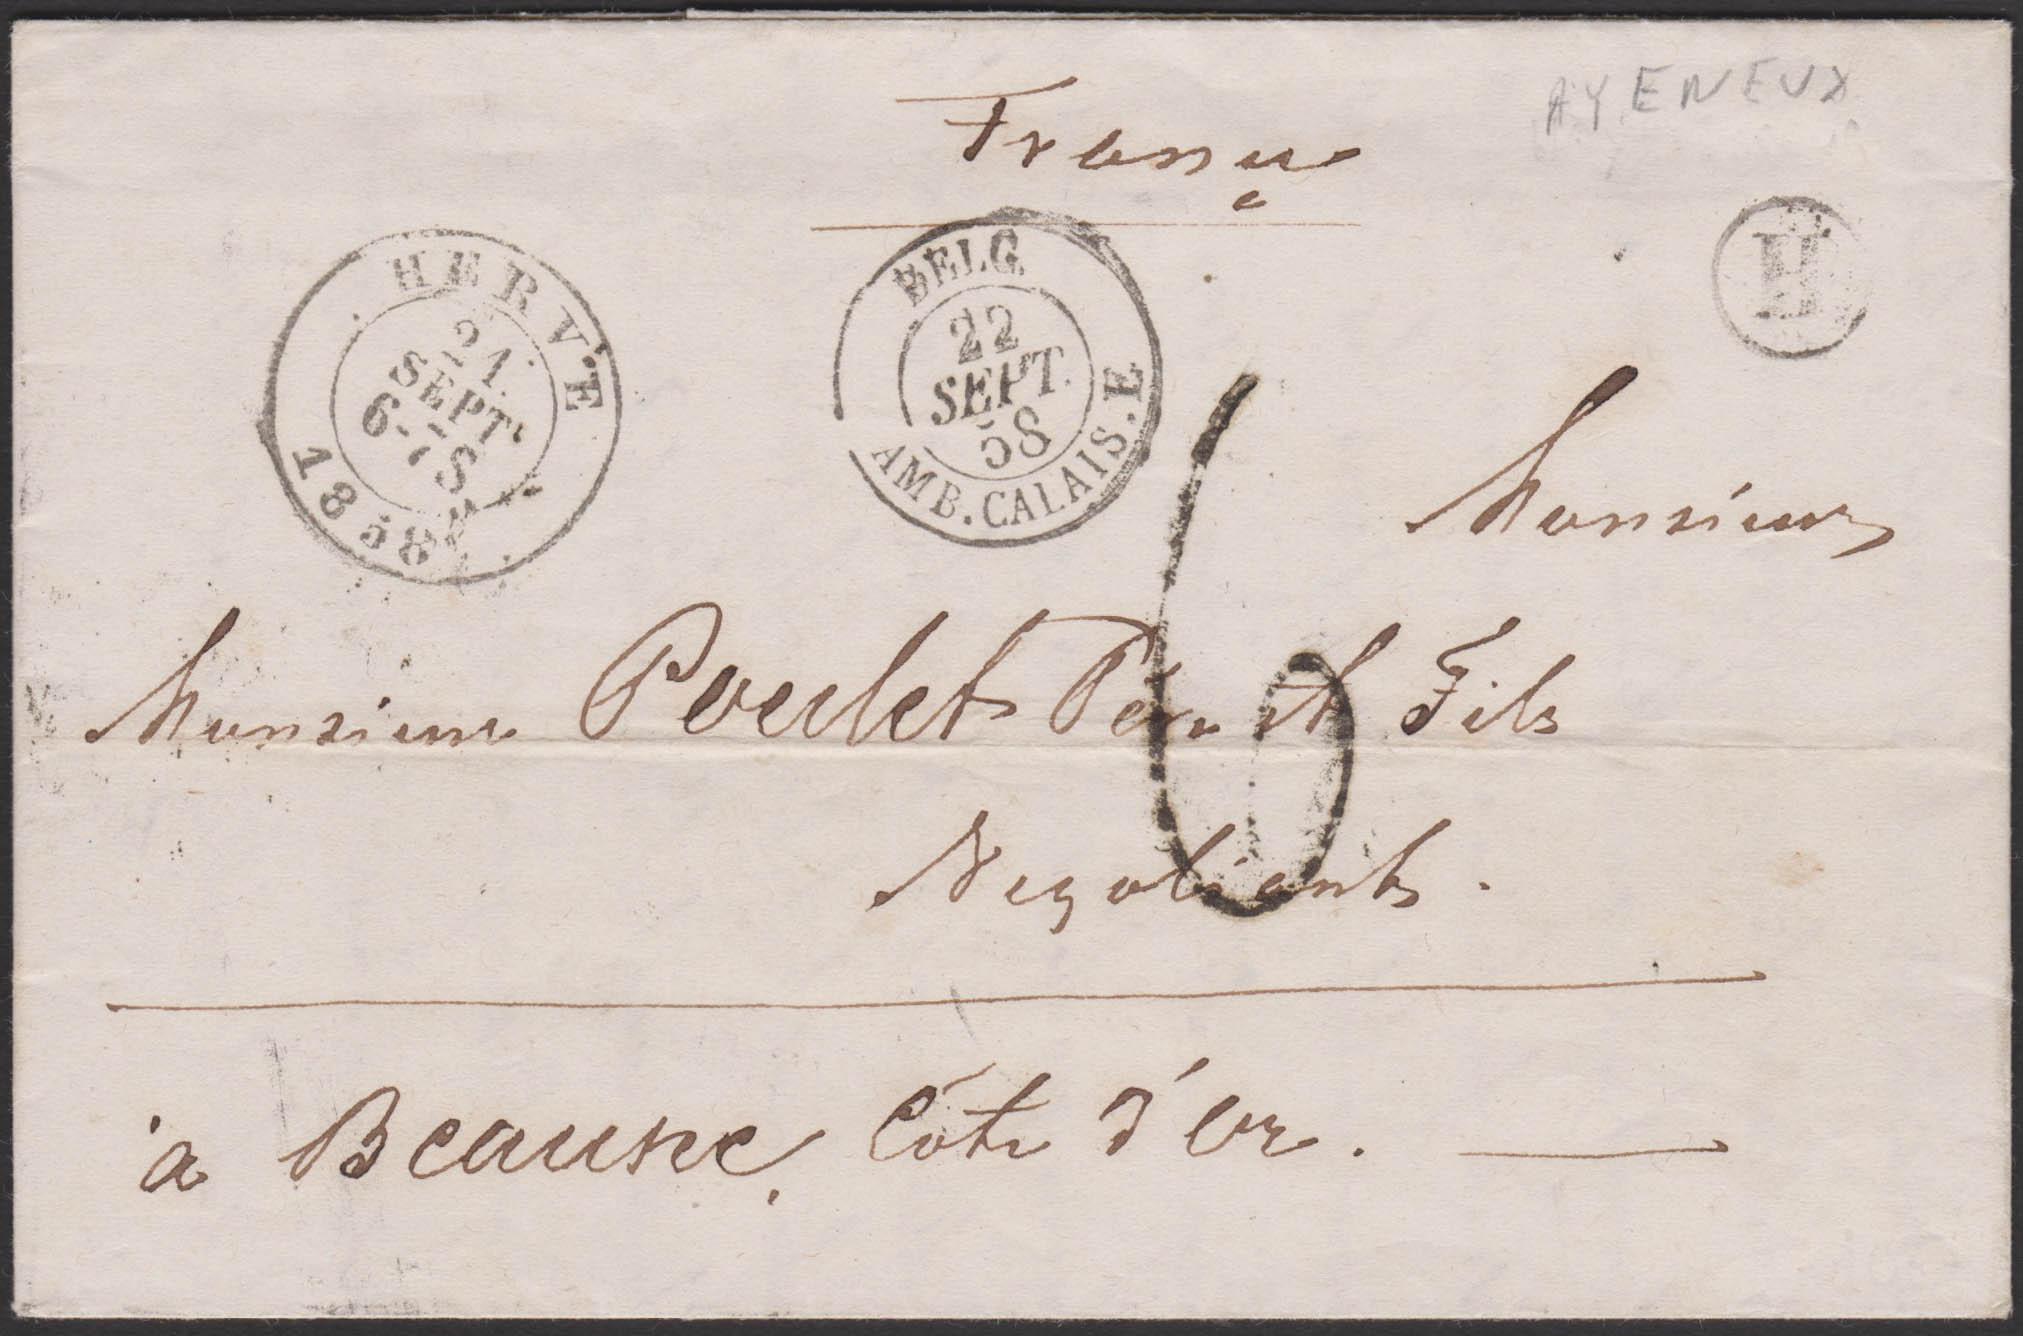 AYENEUX
France
H
HERVE
21
SEPT.
6-7 S
1858
BELG.
22
SEPT.
58
AMB. CALAIS. E
6
Monsieur
Monsieur Poulet Père et Fils
Negotiants.
à Beaune, Côte d'Or.